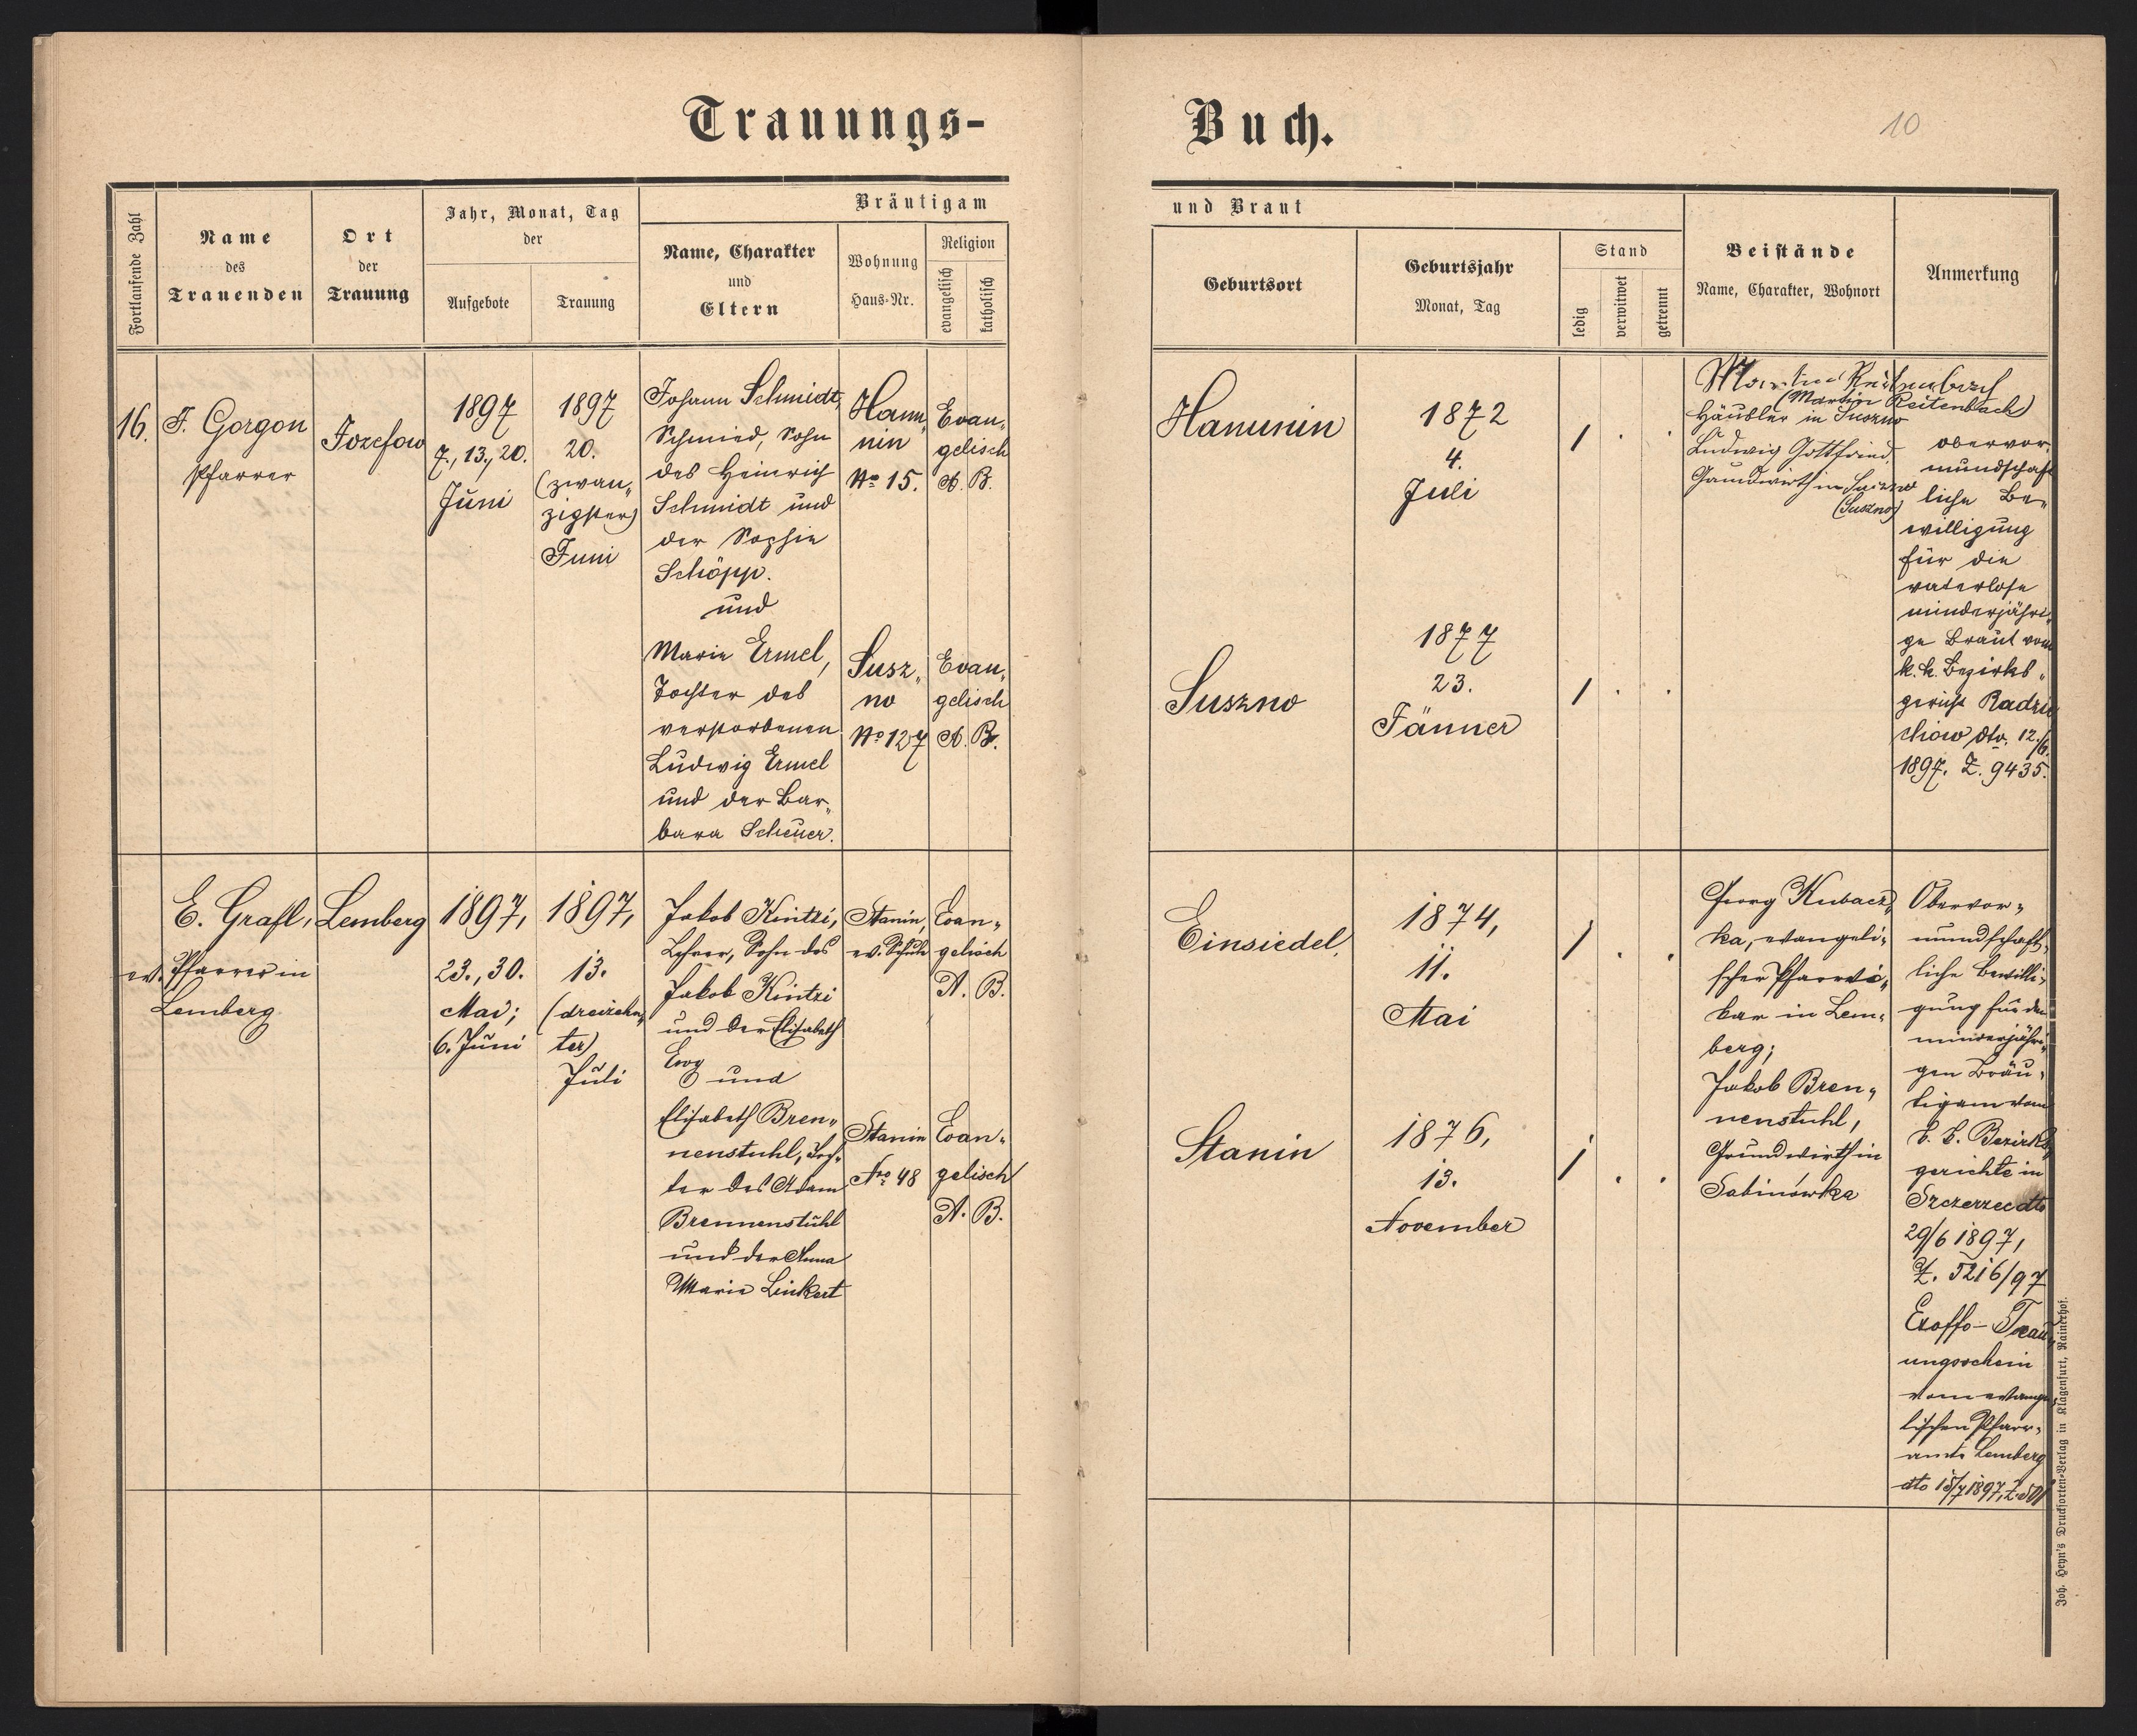 Trauungs-
Buch.
10
Fortlaufende Zahl
Name
des
Trauenden
Ort
der
Trauung
Jahr, Monat, Tag
der
Aufgebote
Trauung
Bräutigam
Name, Charakter
und
Eltern
Wohnung
Haus-Nr.
Religion
evangelisch
katholisch
und Braut
Geburtsort
Geburtsjahr
Monat, Tag
Stand
ledig
verwitwet
getrennt
Beistände
Name, Charakter, Wohnort
Anmerkung
16.
F. Gorgon
Pfarrer
Jozefow
1897
7., 13., 20.
Juni
1897
20.
(zwan„
zigster)
Juni
Johann Schmidt,
Schmied, Sohn
des Heinrich
Schmidt und
der Sophie
Schöpp.
und
Marie Ermel,
Tochter des
verstorbenen
Ludwig Ermel
und der Bar„
bara Scheuer.
Hanu„
nin
No 15.
Susz„
no
No 127
Evan„
gelisch
A. B.
Evan„
gelisch
A. B.
Hanunin
Suszno
1872
4.
Juli
1877
23.
Jänner
/ . .
/ . .
Martin Reitenbach
(Martin Reitenbach)
Häusler in Suszno
Ludwig Gottfried,
Grundwirth in Suszno
(Suszno)
obervor„
mundschaft
liche Be„
willigung
für die
vaterlose
minderjähri„
ge Braut vom
k. k. Bezirks„
gericht Radzie
chow dto. 12./6.
1897. Z. 9435.
E. Grafl,
ev. Pfarrer in
Lemberg
Lemberg
1897,
23., 30.
Mai;
6. Juni
1897,
13.
(dreizehn„
ter)
Juli
Jakob Kintzi,
Lehrer, Sohn des
Jakob Kintzi
und der Elisabeth
und
Elisabeth Bren„
nenstuhl, Toch„
ter des Adam
Brennenstuhl
und der Anna
Maria Linkert
Stanin,
ev. Schule
Stanin
Nro 48
Evan„
gelisch
A. B.
Evan„
gelisch
A. B.
Einsiedel,
Stanin
1874,
11.
Mai
1876,
13.
November
/ . .
/ . .
Georg Kubacz„
ka, evangeli„
scher Pfarrvi„
kar in Lem„
berg;
Jakob Bren„
nenstuhl,
Grundwirth in
Sabinówka
Obervor„
mundschaft„
liche Bewilli„
gung für den
minderjähri„
gen Bräu„
tigam vom
k. k. Bezirks„
gerichte in
Szczerzec dto
29/6 1897,
Z. 5216/97
Exoffo-Trau„
ungsschein
vom evange„
lischen Pfarr„
amte Lemberg
dto 15/7 1897, Z. 501
Joh. Heyn's Drucksorten-Verlag in Klagenfurt, Rainerhof.